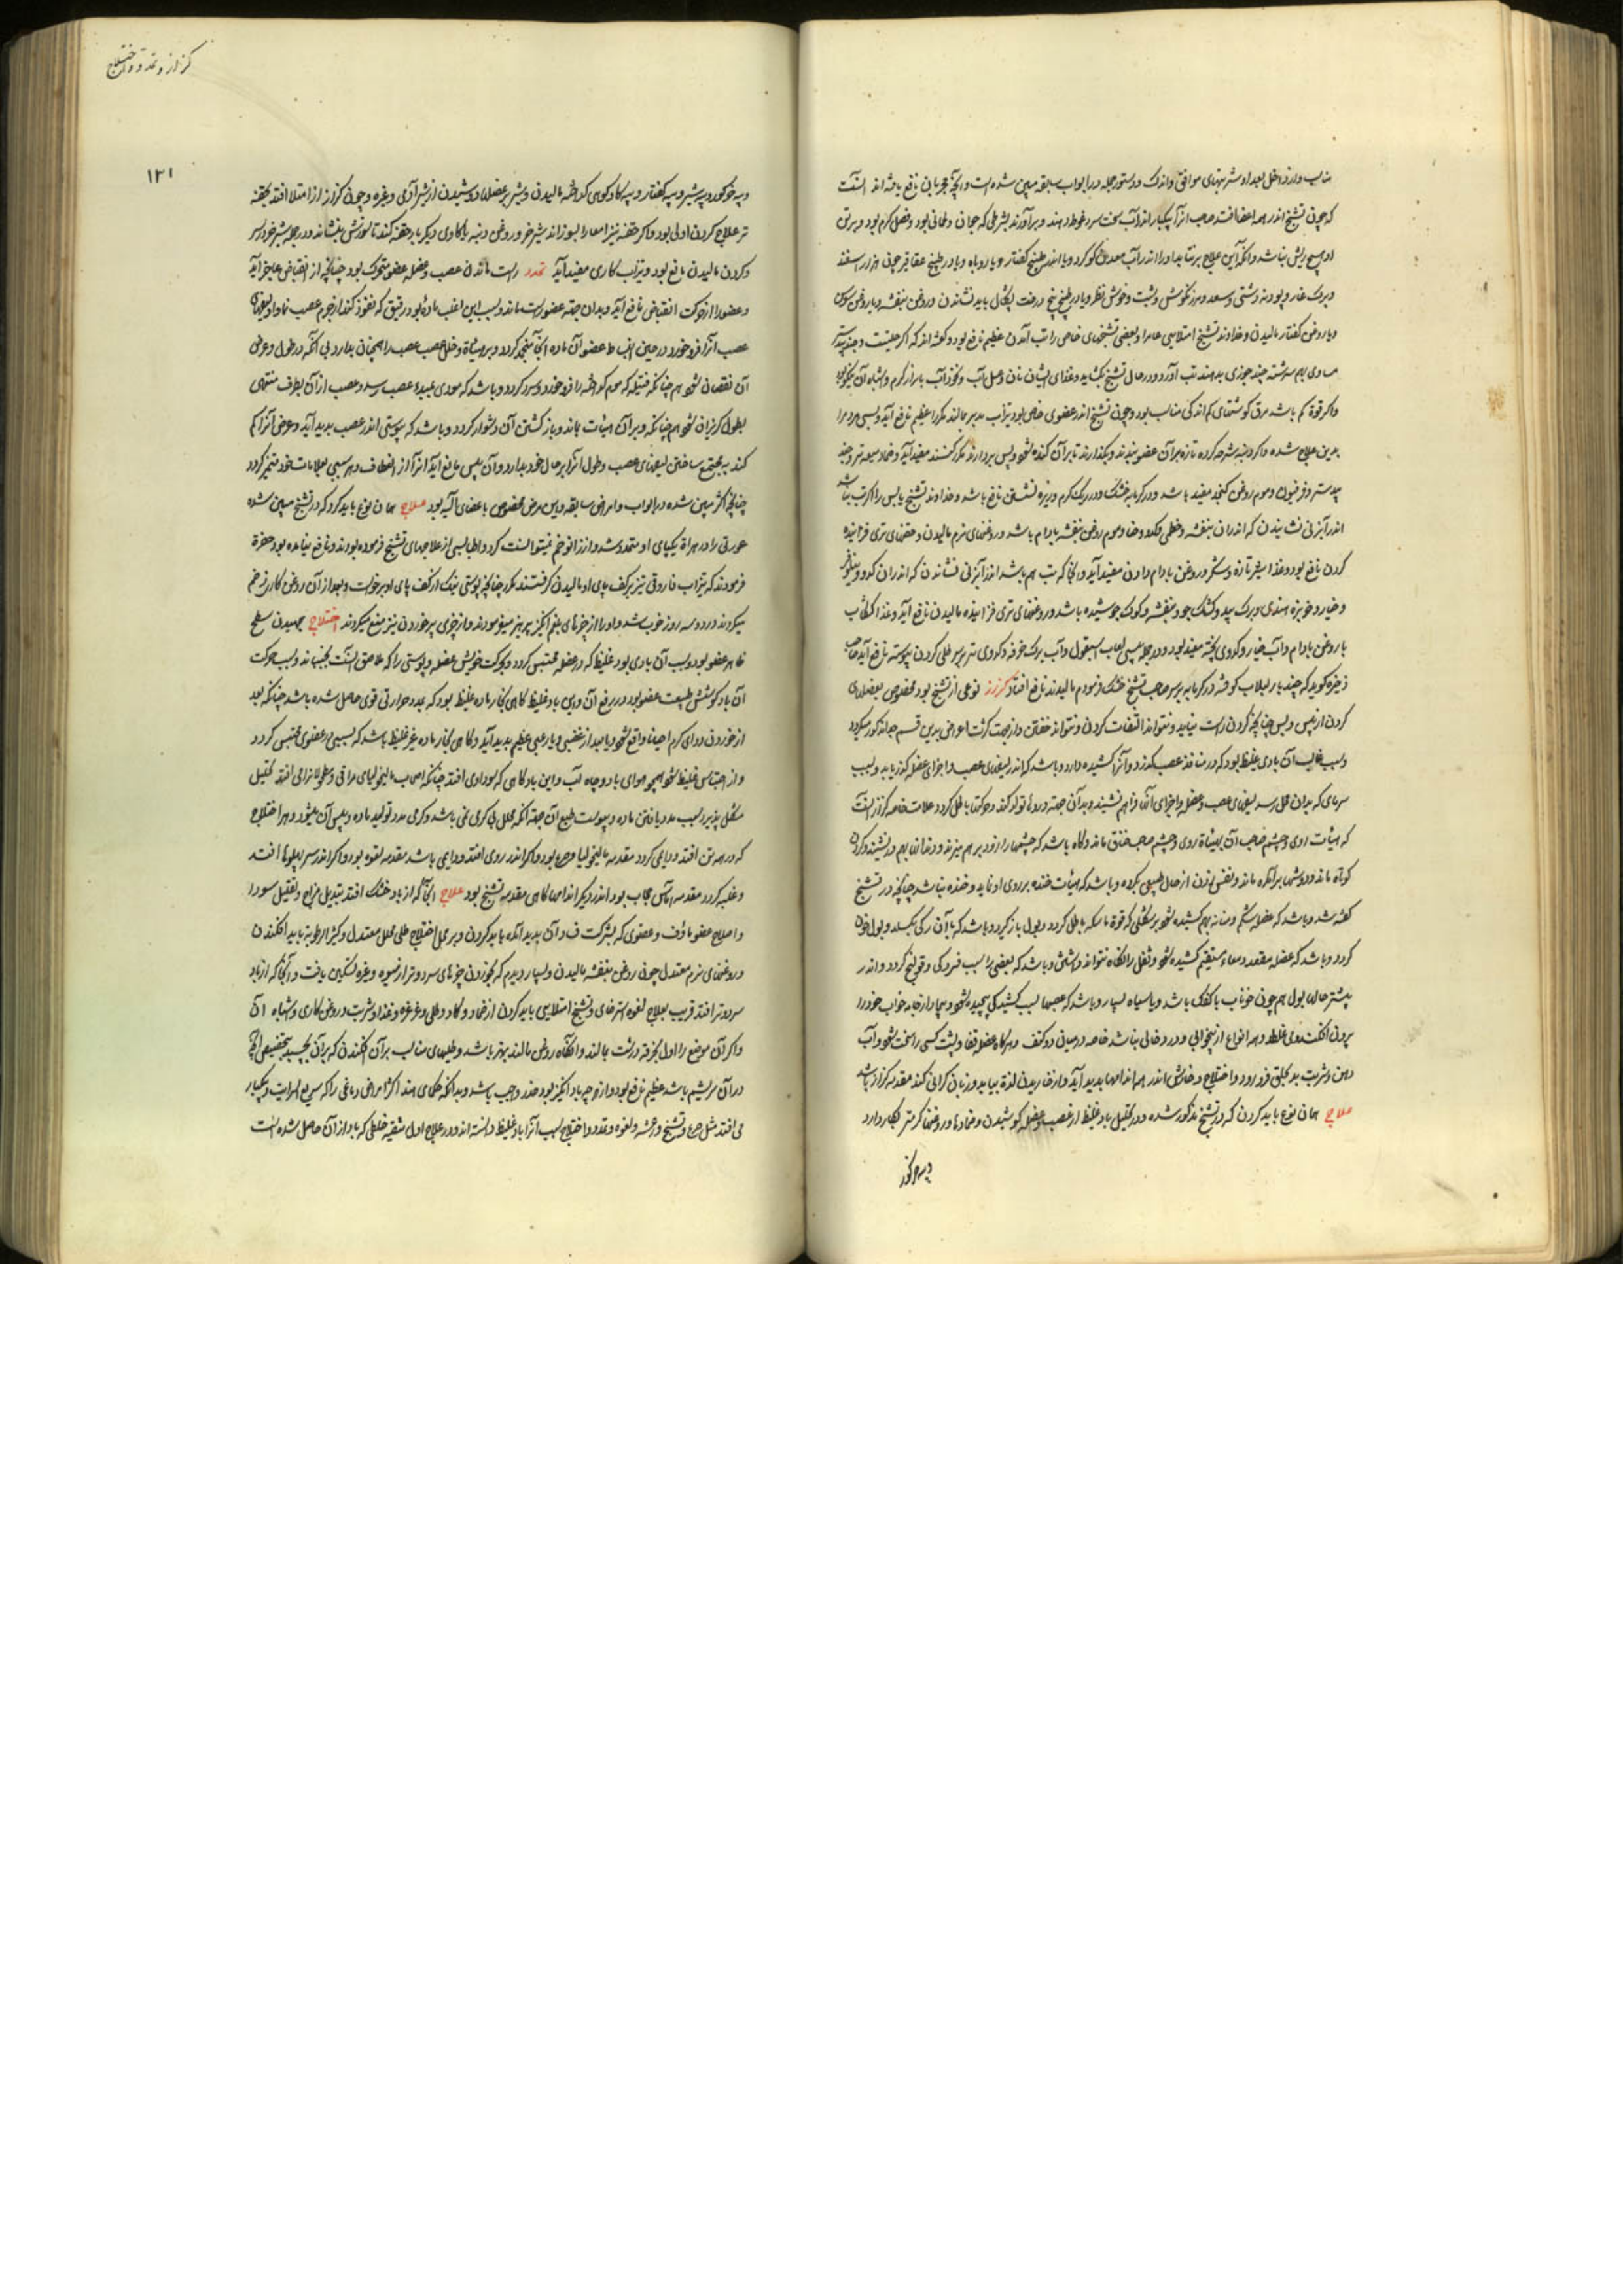 مناسب وارد داخل بعد او شربتهای موافق واندک و دستور جمله در ابواب سابقه مبین شده است و آنچه مجربانی نافع یافته اند آنست
که چون تشنج اندر همه اعضا افتد صاحب آنرا یکبار اندر آب سخت سرد غوطه دهند و برآورند بشرطی که جوان و لحمانی بود و فصل گرم بود و بر تن
او هیچ ریش نباشد و آنکه این علاج برنتابد او را اندر آب معدن گوگرد و یا اندر طبیخ کفتار و یا روباه و یا در طبیخ عقاقیر چون هزار اسفند
و برک غار و پودنه دشتی و سعد و مرزنگوش و شبت
و یا روغن کفتار مالیدن و خداوند تشنج امتلایی عام را و بعضی تشنجهای خاص را تب آمدن عظیم نافع بود و گفته اند که اگر حلتیت و جندبیدستر
مساوی بهم سرشته چند جوزی بدهند تب آورد و در حال تشنج بگشاید و غذای ایشان نان و عسل آب و نخود آب بابزار گرم و اشباه آن
و اگر قوة کم باشد مرق گوشتهای کم اندکی مناسب بود و چون تشنج اندر عضوی خاص بود تیزاب بدبیر بمالند مکرر عظیم نافع آید و بسی مردم را
بدین علاج شده و اگر دنبه شرحه کرده تازه بر آن عضو بندند و بگذارند تا بر آن گنده شود پس بردارند مکرر کنند مفید آید و ضماد میعه تر و جند
بیدستر و فرفیون و موم روغن کنجد مفید باشد و در گرمابه خشک و در ریگ گرم و نیزه نشستن نافع باشد و خداوند تشنج یابس را اگر تب نباشد
اندر آبزنی نشانیدن که اندران بنفشه و خطمی و کدو و ضماد موم روغن بنفشه بادام باشد و روغنهای نرم مالیدن و حقنهای تری فزاینده
کردن نافع بود و غذا شیر تازه و شکر و روغن بادام دادن مفید آید و آنجا که تب هم باشد اندر آبزنی نشاندن که اندران کدو و نیلوفر
و خیار و خربزه هندی و برک بید و کشک جو و بنفشه و کوک جوشیده باشد و روغنهای تری فزاینده مالیدن نافع آید و غذا کشکاب
با روغن بادام و آب خیار و کدوی پخته مفید بود و در جمله یبسی لعاب اسبغول و آب برک خرفه و کدوی تر بر سر طلی کردن پیوسته نافع آید صاحب
ذخیره گوید که چند بار لبلاب کوفته در گرمابه بر سر صاحب تشنج خشک فرمودم مالیدند نافع افتاد کزاز نوعی از تشنج بود مخصوص بعضلهای
گردن از پیش و پس چنانچه گردن راست بماند و نتواند التفات کردن و نتواند خفتن و از جهت کثرت اعراض بدین قسم جدا مذکور میگردد
و سبب غالب آن بادی غلیظ بود که در منافذ عصب گذرد و آنرا کشیده دارد و باشد که اندر لیفهای عصب و اجزای عضل گذر یابد و بسبب
سرمای که بدان محل رسد لیفهای عصب و عضله و اجزای آنها فراهم نشیند و بدان جهته درد تولد کند و حرکتها باطل گردد علامت خاصه کزاز آنست
که هیئات روی و چشم صاحب آن بهیئاة روی و چشم صاحب خناق ماند و گاه باشد که چشمها را زود زود برهم میزند و دندانها بهم درنشیند و گردن
کوتاه ماند و دوشها برآمده ماند و نفس زدن از حال طبیعی بگردد و باشد که هیئات خنده بر روی او نماید و خنده نباشد چنانچه در تشنج
گفته شد و باشد که عضله شکم و مثانه بهم کشیده شود بر شکلی که قوة ماسکه باطل گردد و بول باز نگیرد و باشد که با آن رگی بگسلد و بول خون
گردد و باشد که عضله مقعد و معاء مستقیم کشیده شود و ثفل را نگاه نتواند داشتن و باشد که بعضی را بسبب فسردگی قولنج گردد و اندر
بیشتر حالها بول هم چون خوناب با کفک باشد و یا سیاه بسیار و باشد که عصبها بسبب کشیدگی پیچیده شود و بیمار از جامه خواب خود را
بیرون افکند و همه انواع از بیخوابی و درد خالی نباشد خاصه در میان دو کتف و هرگاه عضل قفا و پشت کسی را سخت شود و آب
دهن و شربت بد بحلق فرو رود و اختلاج و خارش اندر همه اندامها پدید آید و از خاریدن لذة یابد و زبان گرانی کند مقدمه کزاز باشد
علاج همان نوع باید کردن که در تشنج مذکور شده و در تحلیل باد غلیظ از عصب و عضله کوشیدن و ضمادها و روغنها گرمتر بکار دارد
و پیه خوک
کزاز و تمدد و اختلاج
۱۲۱
و پیه خوک و پیه شیر و پیه کفتار و پیه گاو کوهی گداخته مالیدن و شیر بر عضلها دوشیدن از شیر آدمی و غیره و چون کزاز از امتلا افتد بحقنه
تر علاج کردن اولی بود و اگر حقنه تیز امعا را بسوزاند شیر خر و روغن دنبه یا گاوی دیگر بار حقنه کند تا سوزش بنشاند و در جمله شیر خر و بر سر
و گردن مالیدن نافع بود و تیزاب کاری مفید آید تمدد راست ماندن عصب و عضله عضو متحرک بود چنانچه از انقباض عاجز آید
و عضو را از حرکت انقباض مانع آید و بدان جهته عضو راست ماند و سبب این اغلب ماده بود رقیق که نفوذ کند از جرم عصب
عصب آنرا فرو خورد در حین انبساط عضو آن ماده آنجا منجمد گردد و بر هیئاة و خلل عصب عصب را همچنان بدارد بی آنکه در طول و عرض
آن نقصان شود هم چنانکه فتیله که موم گداخته را فرو خورد و سرد گردد و باشد که موذی بمبدء عصب رسد و عصب از آن بطرف منتهای
بطول گریزان شود هم چنانکه و بر آن هیئات بماند و باز گشتن آن دشوار گردد و باشد که یبوستی اندر عصب پدید آید و عرض آنرا کم
کند به مجتمع ساختن لیفهای عصب و طول آنرا بر حال خود بدارد و آن یبس مانع آید آنرا از انعطاف و هر سببی بعلامات خود متمیز گردد
چنانچه اکثر مبین شده در ابواب و امراض سابقه و این مرض مخصوص باعضای آلیه بود علاج همان نوع باید کرد که در تشنج مبین شده
عورتی را در هراة یکپای او متمدد شد و از زانو خم نمیتوانست کرد و اطبا بسی از علاجهای تشنج فرموده بودند و نافع نیامده بود حضرة
فرمودند که تیزاب فاروقی تیز بر کف پای او مالیدن گرفتند مکرر چنانچه پوستی تنک از کف پای او برخواست و بعد از آن روغن کار زخم
میکردند در دو سه روز خوب شد و او را از چیزهای بلغم انگیز پرهیز میفرمودند و از چیزی پر خوردن نیز منع میکردند اختلاج جهیدن سطح
ظاهر عضو بود و سبب آن بادی بود غلیظ که در عضله محتبس گردد و بحرکت خویش عضله و پوستی را که ملاصق آنست بجنباند و سبب حرکت
آن باد کوشش طبیعت عضو بود در رفع آن و این باد غلیظ گاهی بخار ماده غلیظ بود که بمدد حرارتی قوی حاصل شده باشد چنانکه بعد
از خوردن دوای گرم احیانا واقع شود و یا بعد از غضبی و یا رعبی عظیم پدید آید و گاهی بخار ماده غیر غلیظ باشد که بسببی در عضوی محتبس گردد
و از احتباس غلیظ شود همچو هوای بادو چاه آب و این باد گاهی که سوداوی افتد چنانکه اصحاب مالیخولیای مراقی و طحولا نرا می افتد تحلیل
مشکل پذیرد بسبب مدد یافتن ماده و یبوست طبع آن جهته آنکه محلل بی گرمی نمی باشد و گرمی مدد تولید ماده و یبس آن میشود و هر اختلاج
که در همه تن افتد و دایمی گردد مقدمه مالیخولیا و صرع بود و اگر اندر روی افتد و دایمی باشد مقدمه لقوه بود و اگر اندر سر پهلوها افتد
و غلبه گردد مقدمه آماس حجاب بود و اندر دیگر اندامها گاهی مقدمه تشنج بود علاج آنجا که از باد خشک افتد تبدیل مزاج و تقلیل سودا
و اصلاح عضو مأوف و عضوی که بشرکت فساد آن پدید آمده باید کردن و بر محل اختلاج طلی محلل معتدل و کثیر الرطوبة باید افکندن
و روغنهای نرم معتدل چون روغن بنفشه مالیدن و بسیار دیدم که بخوردن چیزهای سرد و تر از میوه و غیره تسکین یافت و آنجا که از باد
سرد و تر افتد قریب بعلاج لقوه استرخای و تشنج امتلایی باید کردن از ضماد و کماد و طلی و غرغره و غذا و شربت و روغن کاری و اشباه آن
و اگر آن موضع را اول بخرقه درشت بمالند و آنگاه روغن مالند بهتر باشد و طلیهای مناسب بر آن افکندن که بر آن بچسبد بتخصیص آنچه
در آن سریشیم باشد عظیم نافع بود و از هر چه باد انگیز بود حذر واجب باشد و بدانکه حکمای هند اکثر امراض دماغی را که سریع السرایت و یکبار
می افتد مثل صرع و تشنج و رعشه و لقوه و تمدد و اختلاج سبب آنرا باد غلیظ دانسته اند و در علاج اول تنقیه خلطی که باد از آن حاصل شده است